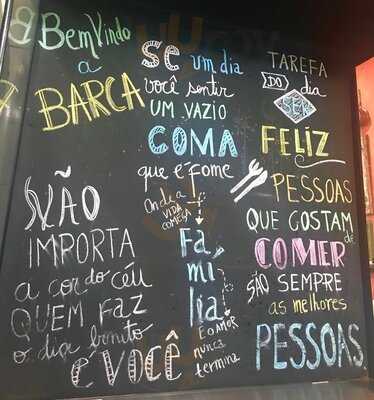 Bem Vindo
a
BARCA
NÃO
IMPORTA
a cor do céu
QUEM FAZ
o dia bonito
é VOCÊ
SE um dia
você sentir
UM VAZIO
COMA
que é fome
Onde a
VIDA
COMEÇA
Fa
mi
lia
E o AMOR
nunca
termina
TAREFA
DO dia
SER
FELIZ
PESSOAS
QUE GOSTAM
de
COMER
SÃO SEMPRE
as melhores
PESSOAS